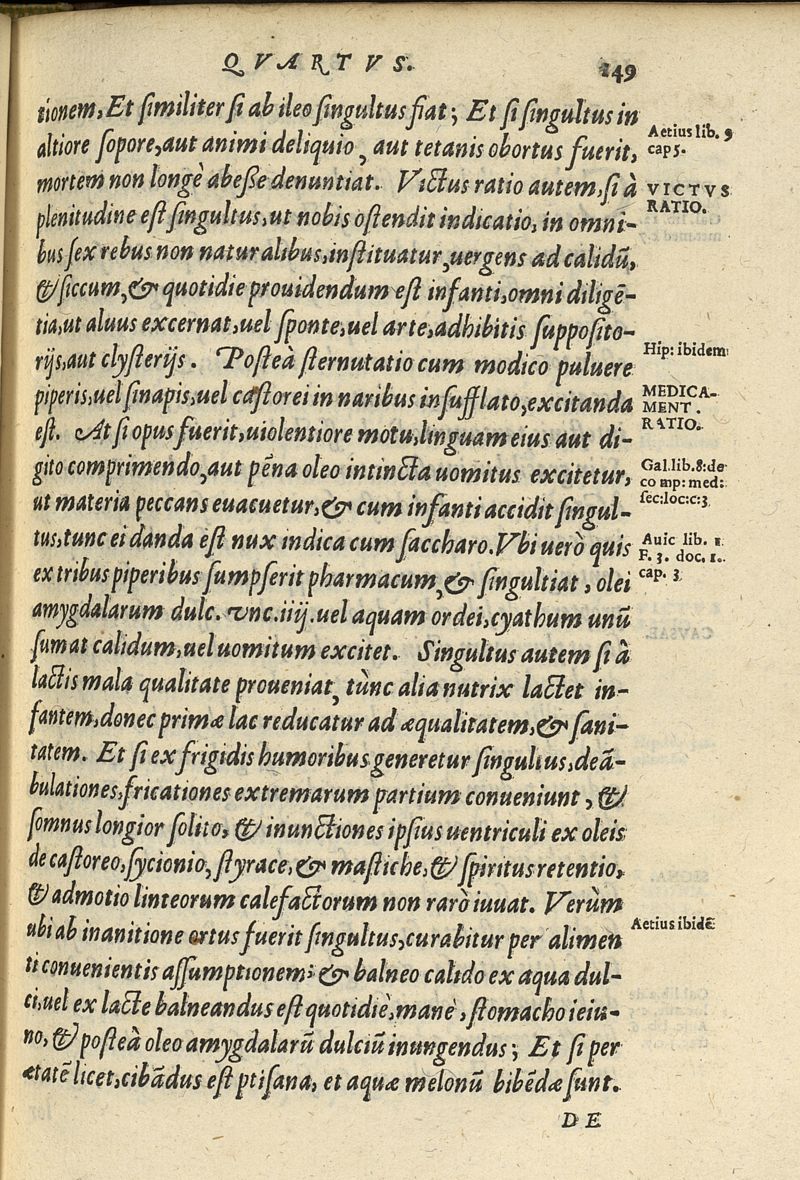 QVARTVS.
149
tionem, Et similiter si ab ileo singultus fiat; Et si singultus in
altiore sopore, aut animi deliquio, aut tetanis obortus fuerit,
mortem non longè abeße denuntiat. Victus ratio autem, si à
plenitudine est singultus, ut nobis ostendit indicatio, in omni-
bus sex rebus non naturalibus, instituatur, uergens ad calidū,
& siccum, & quotidie prouidendum est infanti, omni diligē-
tia, ut aluus excernat, uel sponte, uel arte, adhibitis supposito-
rijs, aut clysterijs. Posteà sternutatio cum modico puluere
piperis, uel sinapis, uel castorei in naribus insufflato, excitanda
est. At si opus fuerit, uiolentiore motu, linguam eius aut di-
gito comprimendo, aut pēna oleo intincta uomitus excitetur,
ut materia peccans euacuetur, & cum infanti accidit singul-
tus, tunc ei danda est nux indica cum saccharo. Vbi uerò quis
ex tribus piperibus sumpserit pharmacum, & singultiat, olei
amygdalarum dulc. vnc. iiij. uel aquam ordei, cyathum unū
sumat calidum, uel uomitum excitet. Singultus autem si à
lactis mala qualitate proueniat, tùnc alia nutrix lactet in-
fantem, donec primæ lac reducatur ad æqualitatem, & sani-
tatem. Et si ex frigidis humoribus generetur singultus, deā-
bulationes, fricationes extremarum partium conueniunt, &
somnus longior solito, & inunctiones ipsius uentriculi ex oleis
de castoreo, sycionio, styrace, & mastiche, & spiritus retentio,
& admotio linteorum calefactorum non rarò iuuat. Verùm
ubi ab inanitione ortus fuerit singultus, curabitur per alimen
ti conuenientis assumptionem; & balneo calido ex aqua dul-
ci, uel ex lacte balneandus est quotidiè, manè, stomacho ieiu-
no, & posteà oleo amygdalarū dulciū inungendus; Et si per
ætatē licet, cibādus est ptisana, et aquæ melonū bibēdæ sunt.
DE
Aetius lib. 9
cap 5.
VICTVS
RATIO.
Hip: ibidem
MEDICA-
MENT.
RATIO.
Gal. lib. 8: de
comp: med:
sec: loc: c: 3
Auic lib. 1
F. 3. doc. 1.
cap. 3
Aetius ibidē